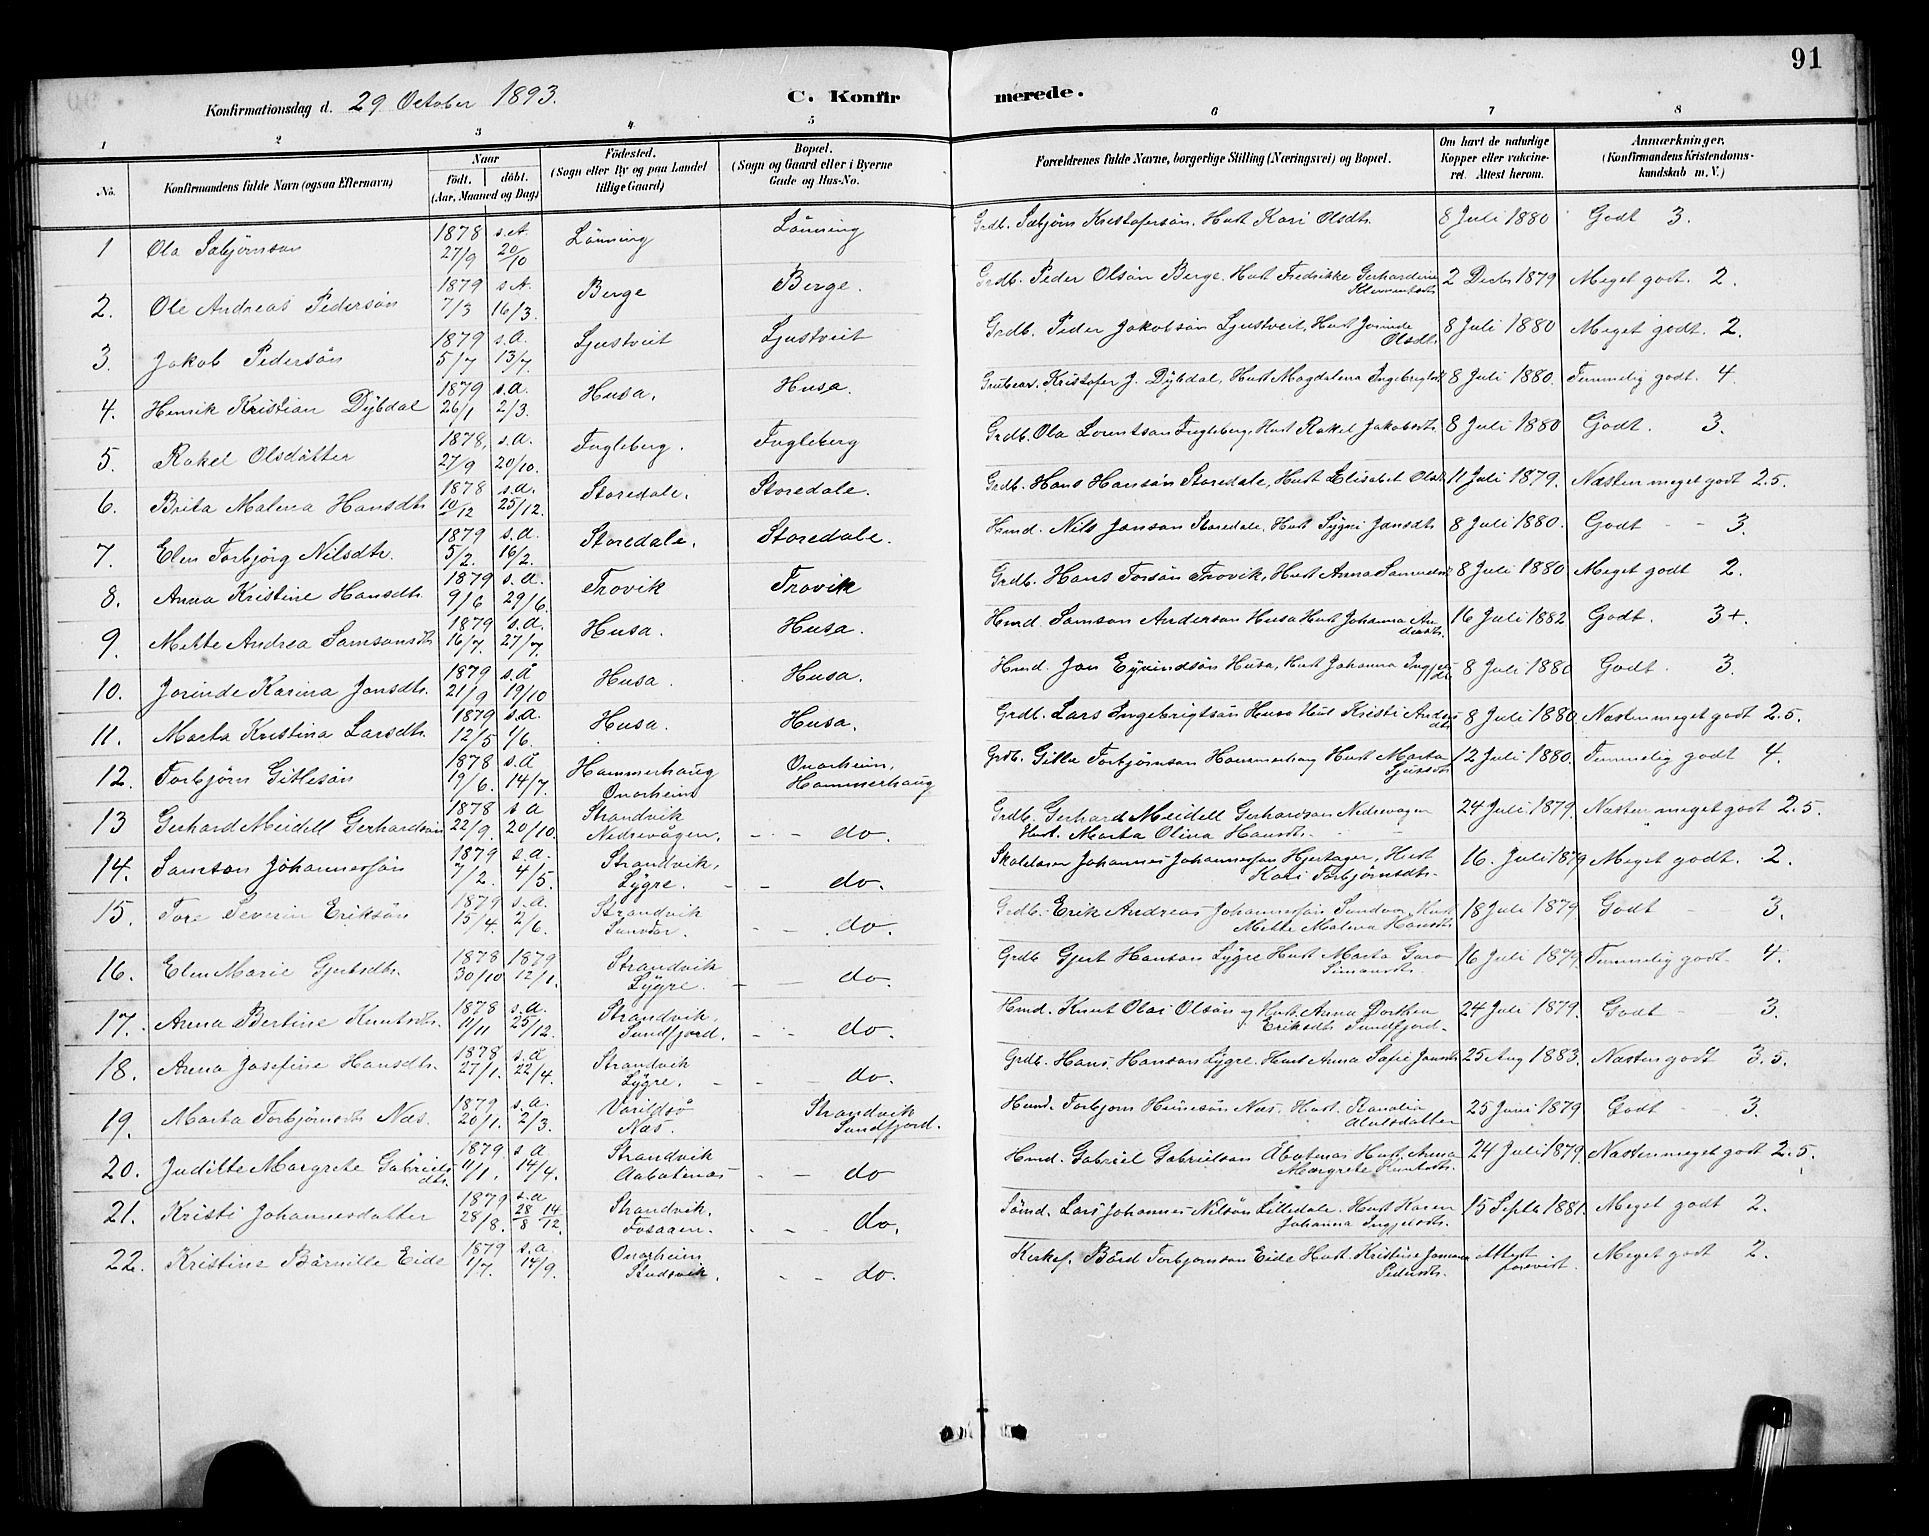 91
Konfirmationsdag d. 29 October 1893.
C. Konfirmerede.
1 2 3 4 5 6 7 8
No. Konfirmandens fulde Navn (ogsaa Efternavn) Naar födt. döbt. (Aar, Maaned og Dag) Födested. (Sogn eller By og paa Landet tillige Gaard) Bopæl. (Sogn og Gaard eller i Byerne Gade og Hus-No. Forældrenes fulde Navne, borgerlige Stilling (Næringsvei) og Bopæl. Om havt de naturlige Kopper eller vakcineret. Attest herom. Anmærkninger. (Konfirmandens Kristendomskundskab m. V.)
1 Ola Sæbjørnson 1878 27/9 s.A. 20/10 Lönning Lönning Grdb. Sæbjørn Kristofersön. Hust Kari Olsdtr. 8 Juli 1880 Godt 3.
2. Ole Andreas Pedersön 1879 7/3 s.A. 16/3. Berge Berge. Grdb. Peder Olsön Berge. Hust Fredrikke Gerhardine Klementsdtr 2 Decbr 1879 Meget godt. 2.
3. Jakob Pedersön 1879 5/7 s.a. 13/7. Ljustveit Ljustveit Grdb. Peder Jakobsön Ljustveit, Hust Jorinde Olsdtr. 8 Juli 1880 Meget godt. 2.
4. Henrik Kristian Dÿbdal 1879 26/1 s.a. 2/3. Husa. Husa. Kristofer J. Dÿbdal, Hust Magdalena Ingebrigtsdt 8 Juli 1880. Temmelig godt. 4.
5. Rakel Olsdatter 1878, 27/9 s.a. 20/10. Fugleberg. Fugleberg Grdb. Ola Lorentsön Fugleberg, Hust Rakel Jakobsdtr 8 Juli 1880 Godt. 3.
6. Brita Malena Hansdtr 1878 10/12 s.a. 25/12. Storedale. Storedale. Grdb. Hans Hansön Storedale, Hust Elisabet Olsdt 11 Juli 1879. Næsten meget godt 2.5.
7. Elen Torbjörg Nilsdtr. 1879 5/2. s.a. 16/2. Storedale. Storedale. Hmd. Nils Jonson Storedale, Hust Sÿgni Jansdtr 8 Juli 1880. Godt - - 3.
8. Anna Kristine Hansdtr. 1879 9/6 s.a. 29/6. Trovik Trovik Grdb. Hans Torsön Trovik, Hust Anna Samuelsdt 8 Juli 1880 Meget godt 2.
9. Mette Andrea Samsonsdtr 1879 16/7. s.a. 27/7. Husa. Husa. Hmd. Samson Anderson Husa Hust Johanna Andersdtr. 16 Juli 1882 Godt. 3+.
10. Jorinde Karina Jonsdtr. 1879 21/9 s.å 19/10 Husa. Husa. Hmd. Jon Eÿvindsön Husa, Hust Johanna Ingjelsdt 8 Juli 1880 Godt. 3.
11. Marta Kristina Larsdtr. 1879 12/5 s.a. 1/6. Husa. Husa. Grdb. Lars Ingebrigtsön Husa Hust Kristi Andersdtr 8 Juli 1880. Næsten meget godt 2.5.
12. Torbjörn Gitlesön 1878 19/6. s.å 14/7. Hammerhaug Onarheim Onarheim, Hammerhaug Grdb. Gitle Torbjørnson Hammerhaug Hust Marta Sjursdtr 12 Juli 1880. Temmelig godt 4.
13 Gerhard Meidell Gerhardsön 1878 22/9. s a 20/10. Strandvik Nedrevågen. - - do. Grdb. Gerhard Meidell Gerhardson Nedrevagen Hust. Marta Olina Hansdtr. 24 Juli 1879. Næsten meget godt 2.5
14. Samson Jöhannessön 1879 7/2. s.a. 4/5. Strandvik, Lÿgre. - - do. Skolelærer Johannes Johannesson Hjertager, Hust Kari Torbjørnsdtr. 16. Juli 1879 Meget godt. 2.
15. Tore Severin Eriksön 1879 15/4. s.a. 2/6. Strandvik Sunvor. - - do. Grdb. Erik Andreas Johannessön Sundvor Hust Mette Malena Hansdtr 18 Juli 1879. Godt - 3.
16. Elen Marie Gjertsdtr. 1878 30/10 1879 12/1. Strandvik Lÿgre. - - do. Grdb Gjert Hanson Lÿgre Hust Marta Guro Simonsdtr. 16 Juli 1879. Temmelig godt. 4.
17. Anna Bertine Knutsdtr. 1878 11/11 s.a. 25/12. Strandvik. Sundfjord. - - do. Hmd. Knut Olai Olsön og Hust. Anna Dorthea Eriksdtr Sundfjord. 24 Juli 1879. Godt - 3.
18. Anna Josefine Hansdtr. 1878 27/1. s.a 22/4. Strandvik Lÿgre. - - do. Grdb. Hans. Hanson Lÿgre. Hust Anna Sofie Jansdtr 25 Aug 1883. Næsten godt 3.5.
19. Marta Torbjörnsdtr Næs. 1879 20/1. s.a. 2/3. Varildsö Næs. Strandvik Sundfjord. Hmd. Torbjorn Heinesön Næs. Hust. Ranolia Alulsdatter 25 Juni 1879. Godt - 3.
20. Juditte Margrete Gabrielsdtr. 1879 11/1. s.a 14/4. Strandvik Aabotenas - - do Hmd. Gabriel Gabrielsön Åbotenas Hust. Anna Margrete Knutsdtr. 24 Juli 1879. Næsten meget godt 2.5.
21. Kristi Johannesdatter 1879 28/8. s.a 28/8 14/12. Strandvik. Fosaaen. - - do. Lars Johannes Nilsön Lilledale. Hust Karen Johanna Ingjelsdtr. 15 Septbr 1881. Meget godt 2.
22. Kristine Bårnille Eide 1879 1/7. s.a. 14/9. Onarheim Studsvik. - - do. Kirkes. Bård Torbjornson Eide Hust. Kristine Pedersdtr. Attest forevist. Meget godt 2.